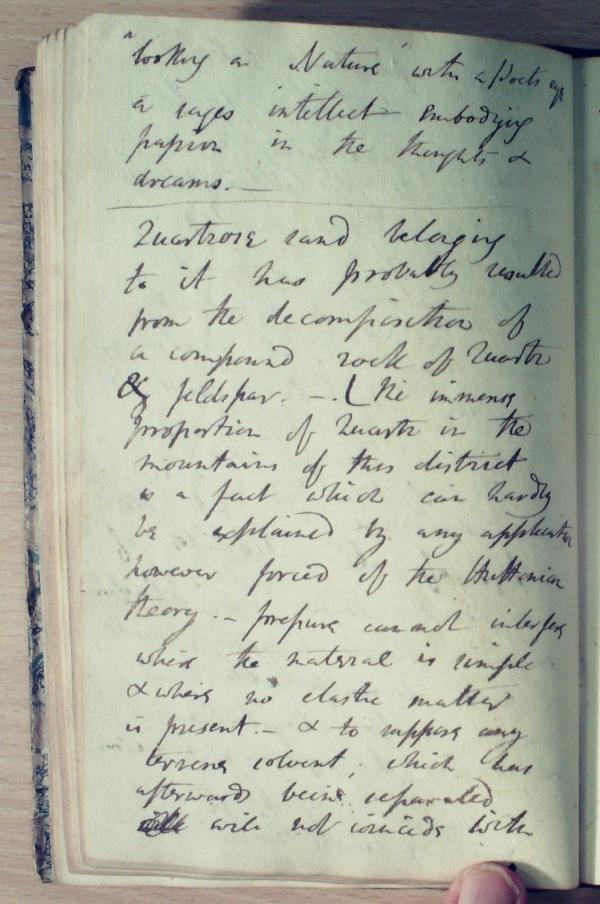 "looking on Nature" with a poets eye
a sages intellect embodying
passion in the thoughts &
dreams. —
Quartzose sand belonging
to it has probably resulted
from the decomposition of
a compound rock of Quartz
& feldspar. — . The immense
proportion of Quartz in the
mountains of this district
is a fact which can hardly
be explained by any application
however forced of the Huttonian
theory. — pressure cannot interfere
where the material is simple
& where no elastic matter
is present. — & to suppose any
terrene solvent; which has
afterwards been separated
will not coincide with